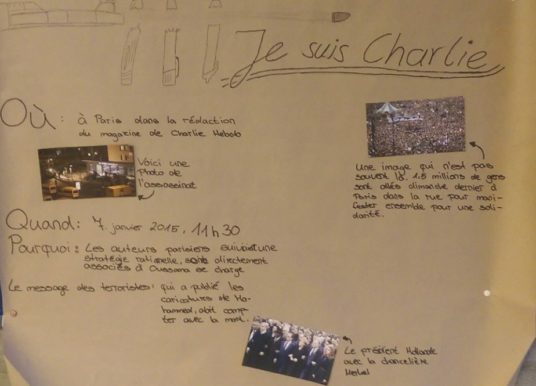 Je suis Charlie
Où: à Paris dans la rédaction
du magazine de Charlie Hebdo
Voici une
Photo de
l'assassinat
Quand: 7. janvier 2015, 11h30
Pourquoi: Les auteurs parisiens suivaient une
stratégie rationelle, sont directement
associés d'Oussama se charge
Le message des terroristes: qui a publié les
caricatures de Mo-
hammed, doit comp-
ter avec la mort.
Une image qui n'est pas
souvent là. 1.5 millions de gens
sont allés dimanche dernier à
Paris dans la rue pour mani-
fester ensemble pour une soli-
darité.
Le président Hollande
avec la chancelière
Merkel